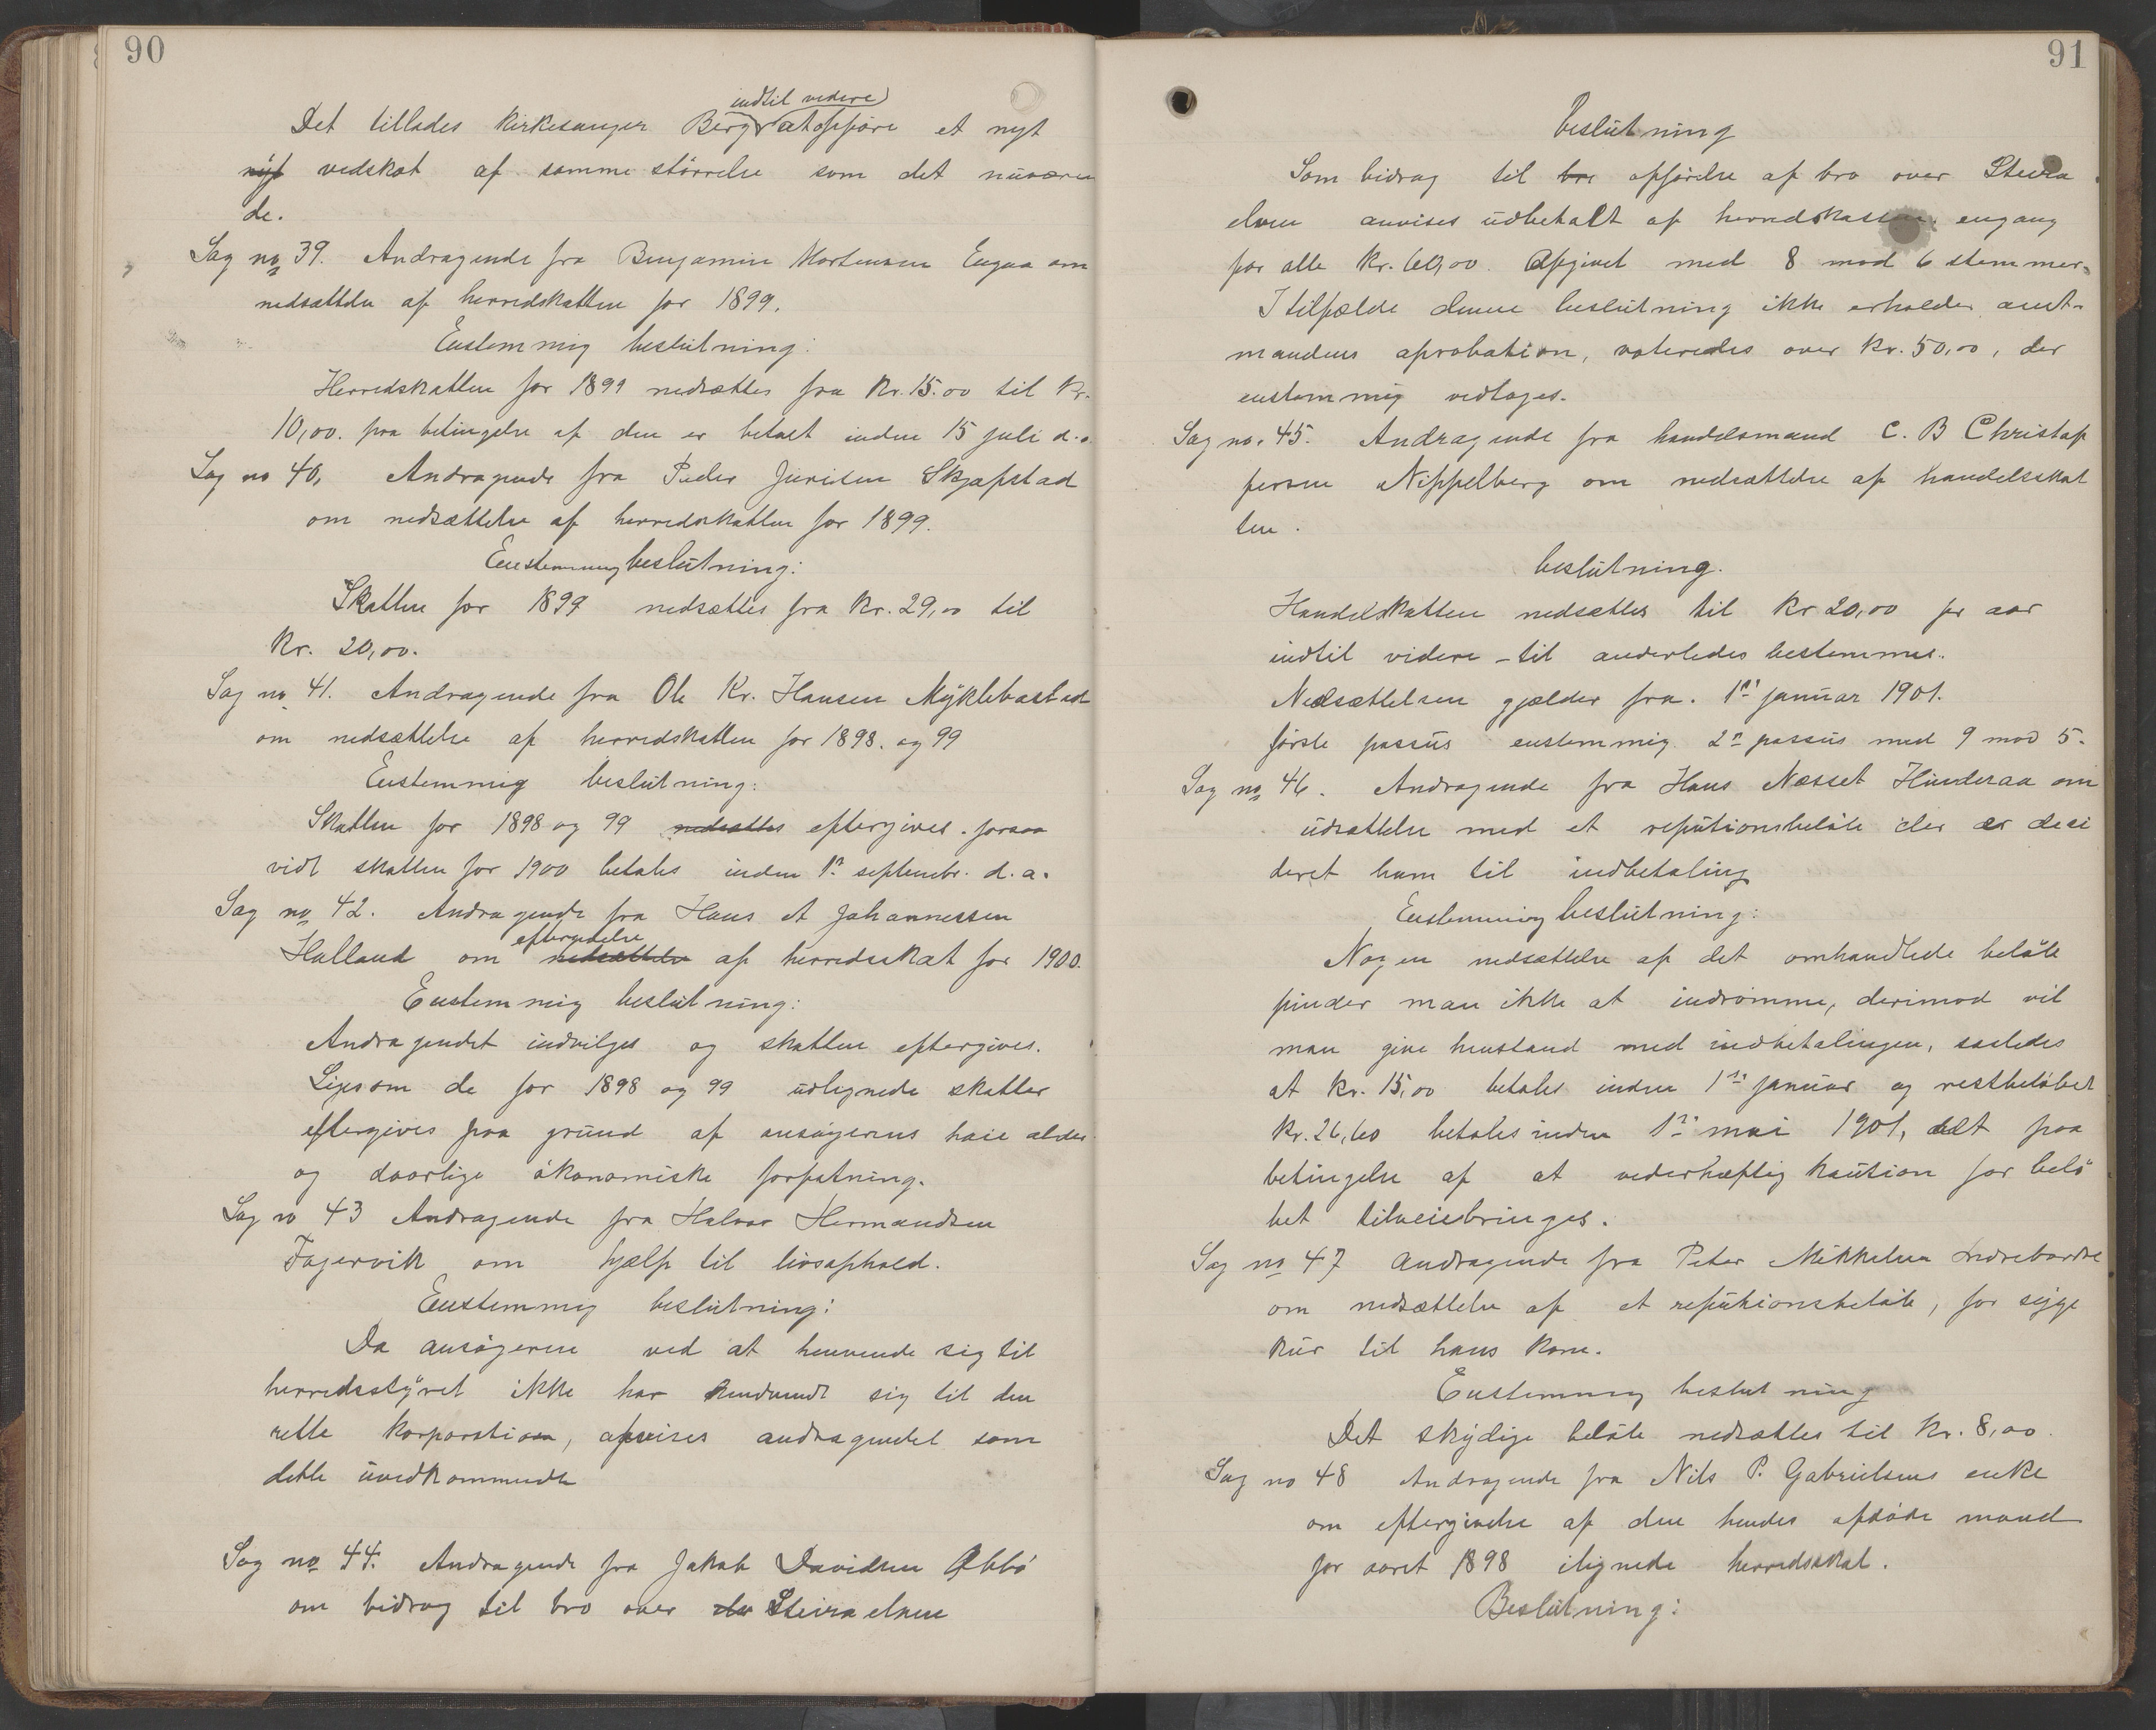 90
indtil videre
Det tillades kirkesanger Berg at opføre et nyt
nyt vedskot af samme størrelse som det nuværen
de.
Sag no 39. Andragende fra Benjamin Mortensen Engaa om
nedsættelse af herredskatten for 1899.
Enstemmig beslutning:
Herredskatten for 1899 nedsættes fra Kr. 15.00 til Kr.
10,00. paa betingelse af den er betalt inden 15 juli d.a.
Sag no 40, Andragende fra Peder Jurisen Skjafstad
om nedsættelse af herredsskatten for 1899.
Enstemmig beslutning:
Skatten for 1899 nedsættes fra Kr. 29,00 til
Kr. 20,00.
Sag no 41. Andragende fra Ole Kr. Hansen Myklebostad
om nedsættelse af herredskatten for 1898. og 99
Enstemmig beslutning:
Skatten for 1898 og 99 nedsættes eftergives. forsaa
vidt skatten for 1900 betales inden 1ste septembr. d.a.
Sag no 42. Andragende fra Hans A Johannessen
eftergivelse
Halland om nedsættelse af herredsskat for 1900.
Enstemmig beslutning:
Andragendet indvilges og skatten eftergives.
Ligesom de for 1898 og 99 udlignede skatter
eftergives paa grund af ansøgerens høie alder
og daarlige økonomiske forfatning.
Sag no 43 Andragende fra Halvor Hermandsen
Fagervik om hjælp til livsophold.
Enstemmig beslutning:
Da ansøgeren ved at henvende sig til
herredsstyret ikke har henvendt sig til den
rette korporation, afvises andragendet som
dette uvedkommende
Sag no 44. Andragende fra Jakob Davidsen Abbø
om bidrag til bro over elv Steiraelven
91
beslutning
Som bidrag til bro opførelse af bro over Steira
elven anvises udbetalt af herredskassen engang
for alle Kr. 60,00. Afgivet med 8 mod 6 stemmer.
I tilfælde denne beslutning ikke erholder amt-
mandens aprobation, voteredes over Kr. 50,00, der
enstemmig vedtoges.
Sag no. 45. Andragende fra handelsmand C. B Christof
fersen Nippelberg om nedsættelse af handelsskat
ten.
beslutning.
Handelskatten nedsættes til Kr 20,00 pr aar
indtil videre - til anderledes bestemmes.
Nedsættelsen gjælder fra. 1ste januar 1901.
første passus enstemmig 2n passus med 9 mod 5.
Sag no 46. Andragende fra Hans Næsset Hinderaa om
udsættelse med et reputionsbeløb der er deci
deret ham til indbetaling
Enstemmig beslutning:
Nogen nedsættelse af det omhandlede beløb
finder man ikke at indrømme, derimod vil
man give henstand med indbetalingen, saaledes
at Kr. 15,00 betales inden 1ste januar og restbeløbet
Kr. 26,60 betales inden 1ste mai 1901, alt paa
betingelse af at vederhæftig kaution for belø
bet tilveiebringes.
Sag no 47 andragende fra Peter Mikkelsen Indrebordtø
om nedsættelse af et reputionsbeløb, for syge
kur til hans kone.
Enstemmig beslutning
Det skyldige beløb nedsættes til Kr. 8,00.
Sag no 48 Andragende fra Nils P. Gabrielsens enke
om eftergivelse af den hendes afdøde mand
for aaret 1898 ilignede herredsskat.
Beslutning: